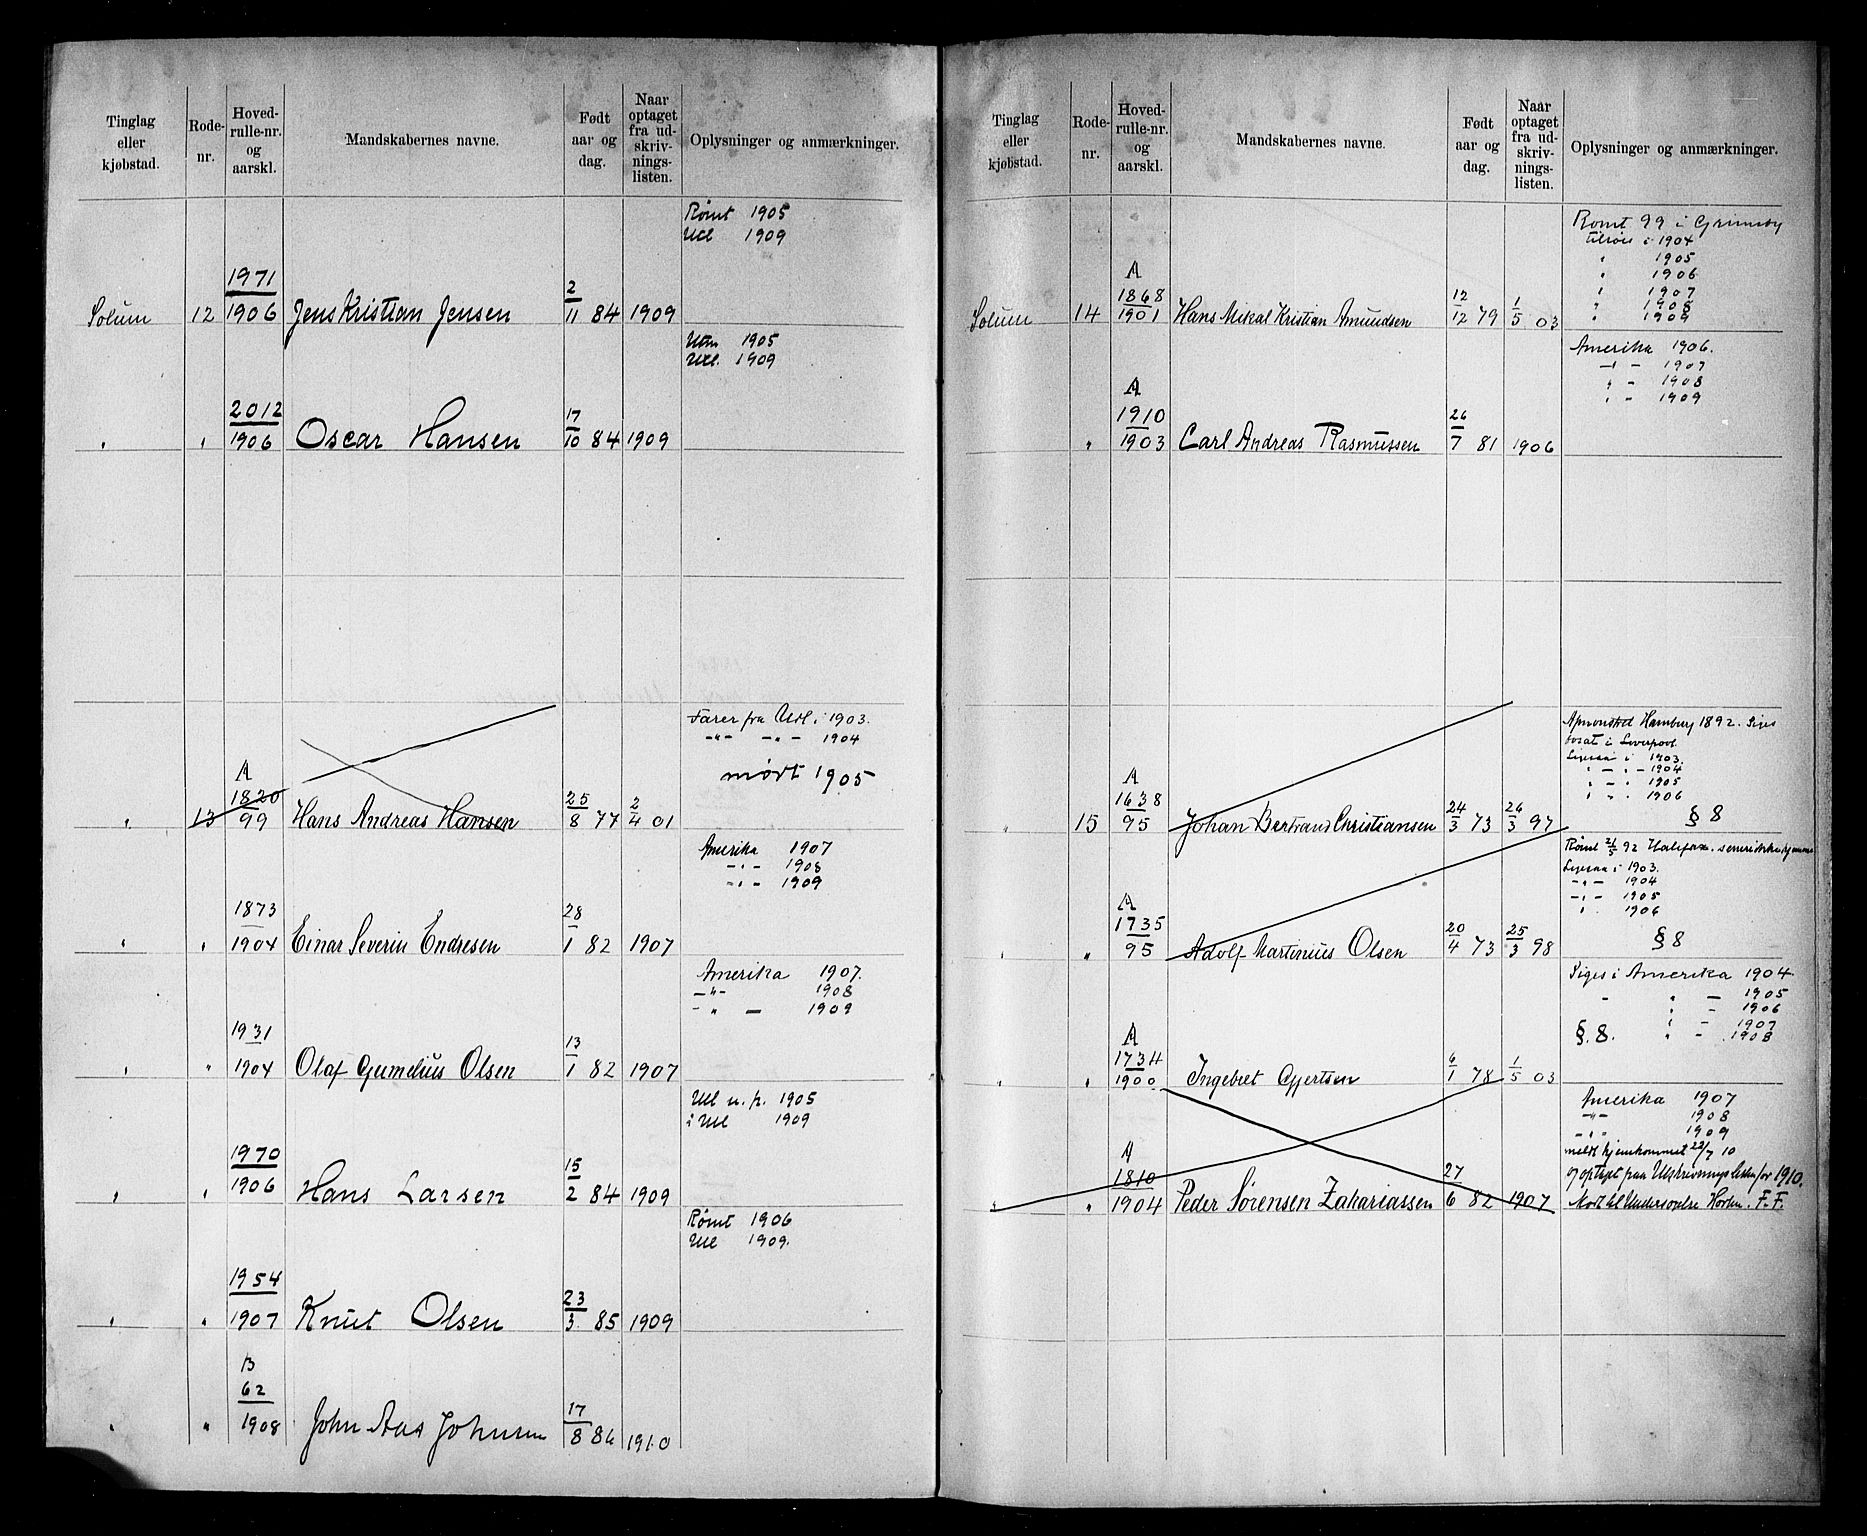 Tinglag
eller
kjøbstad.
Rode-
nr.
Hoved-
rulle-nr.
og
aarskl.
Mandskabernes navne.
Født
aar og
dag.
Naar
optaget
fra ud-
skriv-
nings-
listen.
Oplysninger og anmærkninger.
Rømt 1905
Utl 1909
1971
Solum 12 1906 Jens Kristian Jensen 2/11 84 1909
1905
Utl. 1909
2012
" " 1906 Oscar Hansen 17/10 84 1909
Farer fra Utl. i 1903.
-"- -"- 1904
mørt 1905
A
1820
" 13 99 Hans Andreas Hansen 25/8 77 2/4 01
Amerika 1907
-"- 1908
-"- 1909
1873
" " 1904 Einar Severin Endresen 28/1 82 1907
Amerika 1907.
-"- 1908
-"- 1909
1931
" " 1904 Olaf Gumelius Olsen 13/1 82 1907
Utl u. p. 1905
i Utl 1909
1970
" " 1906 Hans Larsen 15/2 84 1909
Rømt 1906
Utl 1909.
1954
" " 1907 Knut Olsen 23/3 85 1909
B
62
" " 1908 John Aas Johnsen 17/8 86 1910
Tinglag
eller
kjøbstad.
Rode-
nr.
Hoved-
rulle-nr.
og
aarskl.
Mandskabernes navne.
Født
aar og
dag.
Naar
optaget
fra ud-
skriv-
nings-
listen.
Oplysninger og anmærkninger.
Rømt 99 i Grimsby
tilsøis i 1904
" 1905
" 1906
" 1907
" 1908
" 1909
A
1868
Solum 14 1901 Hans Mikal Kristian Amundsen 12/12 79 1/5 03
Amerika 1906.
-"- 1907
" - 1908
" - 1909
A
1910
" 1903 Carl Andreas Rasmussen 26/7 81 1906
Afmønstret Hamburg 1892. Siges
bosat i Liverpool.
Ligesaa i 1903.
" - " - 1904
" - " - 1905
" - " 1906
§ 8
A
1638
" 15 95 Johan Bertrand Christiansen 24/3 73 26/3 97
Rømt 21/5 92 Halifax. senere ikke hjemme
Ligesaa i 1903.
-"- 1904
-"- 1905
" 1906
§ 8
A
1735
" " 95 Adolf Martinius Olsen 20/4 73 25/3 98
Siges i Amerika 1904.
- " - 1905
" - 1906
" - 1907
§. 8. " - 1908
A
1734
" " 1900 Ingebret Gjertsen 6/1 78 1/5 03
Amerika 1907
-"- 1908
-"- 1909
meldt hjemkommet 22/7 10
og optaget paa Udskrivningslisten for 1910.
A
1810
" 1904 Peder Sørensen Zakariassen 27/6 82 1907 til Undersøgelse Horten. F. F.